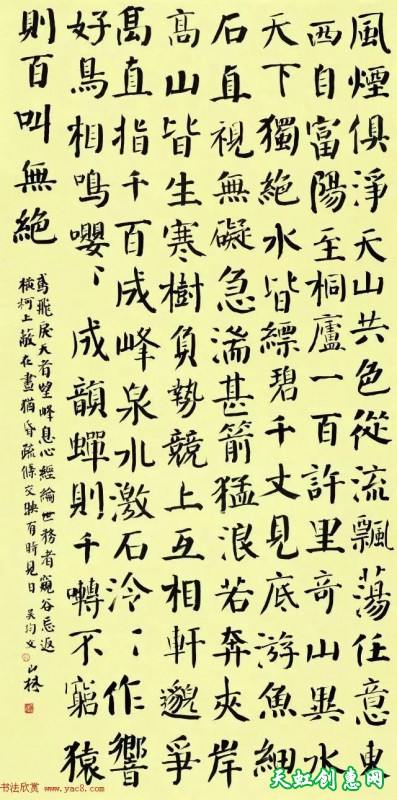 風煙俱淨天山共色從流飄蕩任意東
西自富陽至桐廬一百許里奇山異水
天下獨絕水皆縹碧千丈見底游魚細
石直視無礙急湍甚箭猛浪若奔夾岸
高山皆生寒樹負勢競上互相軒邈爭
高直指千百成峰泉水激石泠、作響
好鳥相鳴嚶、成韻蟬則千囀不窮猿
則百叫無絕
鳶飛戾天者望峰息心經綸世務者窺谷忘返
橫柯上蔽在晝猶昏疏條交映有時見日 吳均文
书法欣赏 www.yac8.com
天虹创惠网